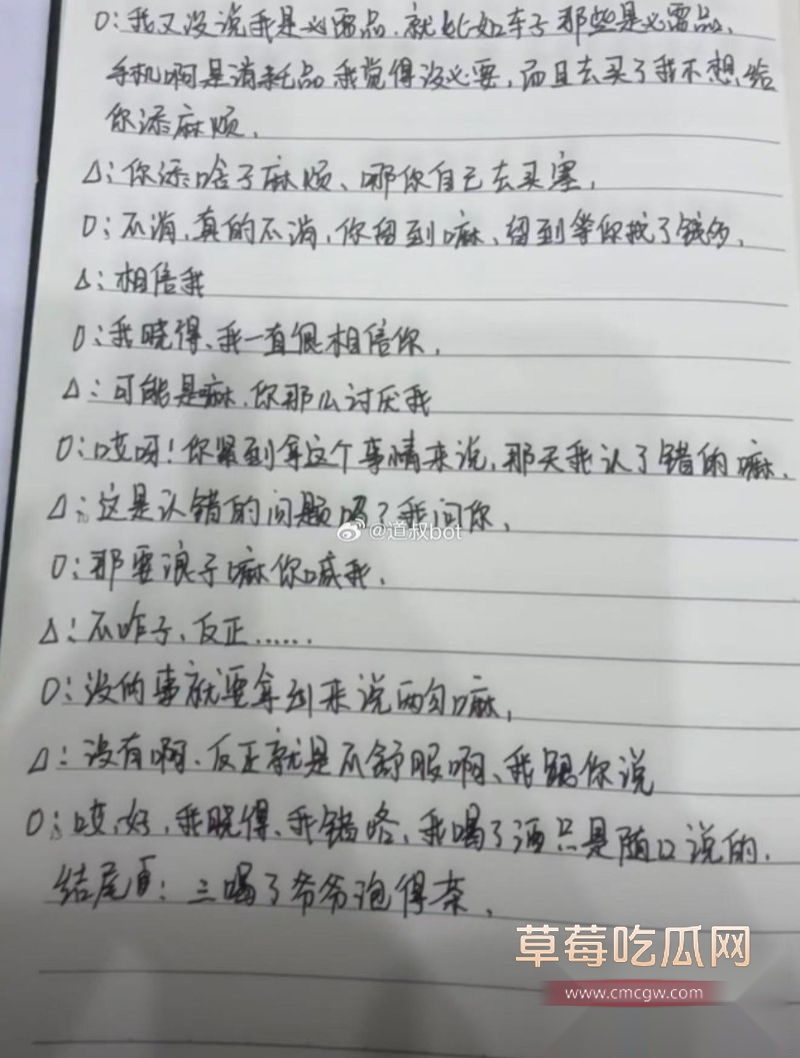 O:我又没说我是必需品,就比如车子那些是必需品,
手机啊是消耗品我觉得没必要,而且去买了我不想给
你添麻烦.
Δ:你添啥子麻烦、哪你自己去买塞,
O:不消,真的不消,你留到嘛、留到等你找了钱多,
Δ:相信我
O:我晓得、我一直很相信你.
Δ:可能是嘛.你那么讨厌我
O:哎呀!你紧到拿这个事情来说,那天我认了错的嘛.
Δ:这是认错的问题吗?我问你.
@道叔bot
O:那要浪子嘛你喊我.
Δ:不咋子、反正......
O:没的事就要拿到来说两句嘛,
Δ:没有啊、反正就是不舒服啊、我跟你说
O:哎,好,我晓得、我错咯,我喝了酒只是随口说的.
结尾页:三喝了爷爷泡得茶.
草莓吃瓜网
www.cmcgw.com